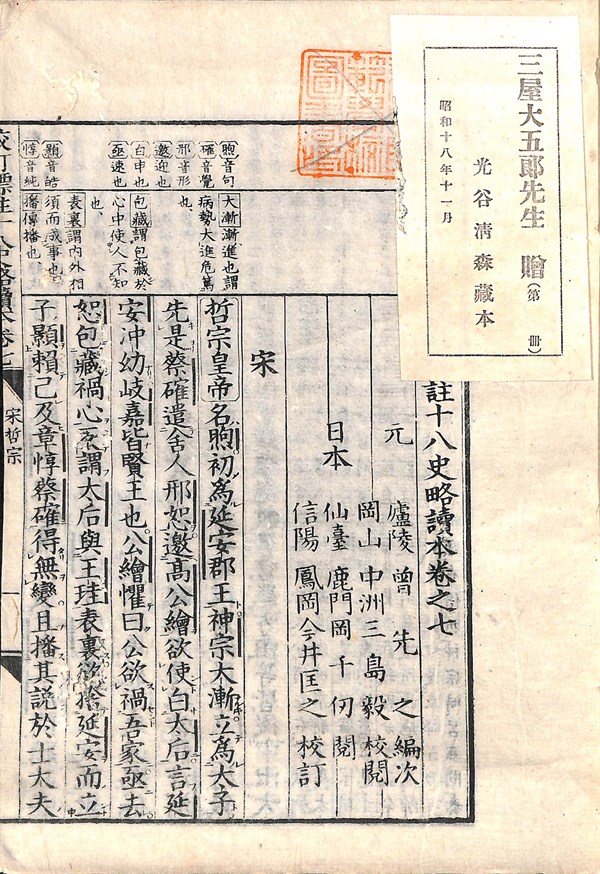 三屋大五郎先生 贈(第 冊)
光谷清森藏本
昭和十八年十一月
註十八史略讀本卷之七
元 廬陵 曾先之 編次
岡山 中洲三島毅 校閱
日本 仙臺 鹿門岡千仞 閱
信陽 鳳岡今井匡之 校訂
宋
哲宗皇帝名煦初爲延安郡王神宗大漸立爲太子
先是蔡確遣舍人邢恕邀高公繪欲使白太后言延
安冲幼岐嘉皆賢王也公繪懼曰公欲禍吾家亟去
恕包藏禍心反謂太后與王珪表裏欲捨延安而立
子顥賴己及章惇蔡確得無變且播其説於士大夫
煦音句
確音覺
邢音形
邀迎也
白申也
亟速也
顥音皓
惇音純
大漸漸進也謂
病勢大進危篤
也、
包藏謂包藏於
心中使人不知
也、
表裏謂内外相
須而成事也、
播傳播也
校訂標註十八史略讀本卷七
宋哲宗